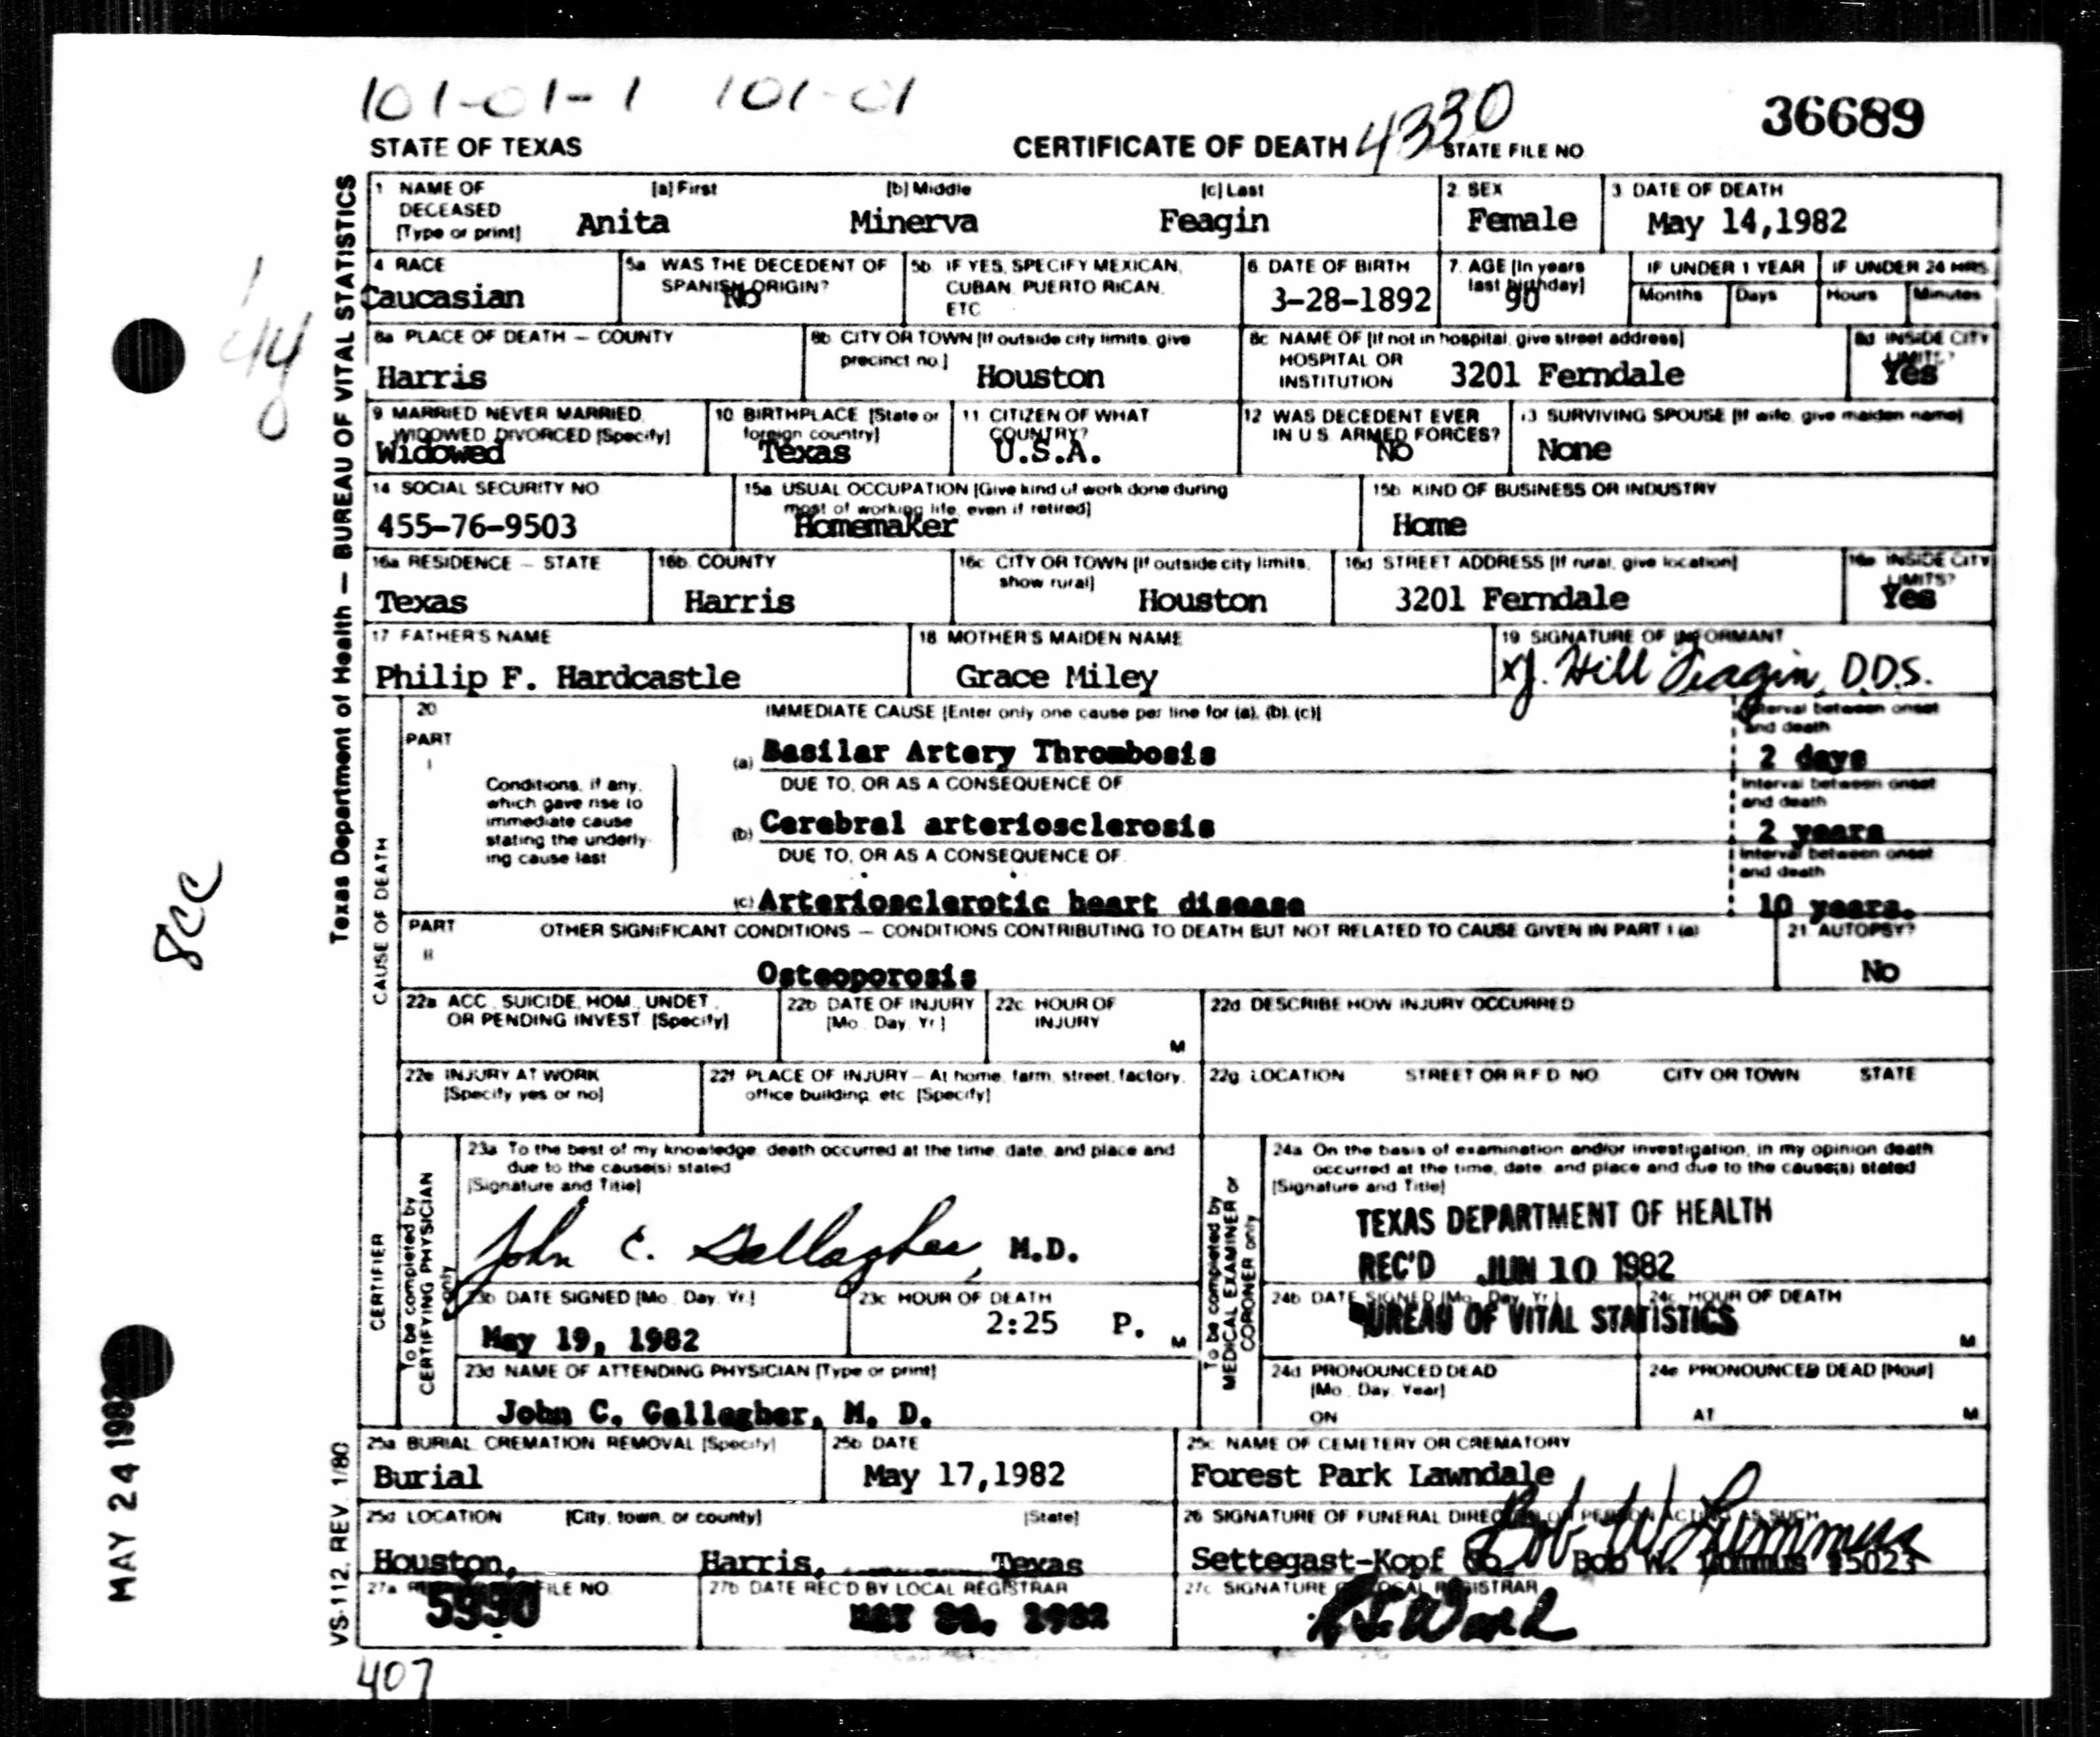 101-01-1 101-01
36689
STATE OF TEXAS CERTIFICATE OF DEATH 4330 STATE FILE NO
Texas Department of Health — BUREAU OF VITAL STATISTICS
1 NAME OF DECEASED [Type or print] [a] First [b] Middle [c] Last
Anita Minerva Feagin
2 SEX
Female
3 DATE OF DEATH
May 14,1982
4 RACE
Caucasian
5a WAS THE DECEDENT OF SPANISH ORIGIN?
No
5b IF YES, SPECIFY MEXICAN, CUBAN, PUERTO RICAN, ETC
6 DATE OF BIRTH
3-28-1892
7. AGE [In years last birthday]
90
IF UNDER 1 YEAR
Months Days
IF UNDER 24 HRS
Hours Minutes
8a PLACE OF DEATH — COUNTY
Harris
8b CITY OR TOWN [If outside city limits, give precinct no.]
Houston
8c NAME OF [If not in hospital, give street address] HOSPITAL OR INSTITUTION
3201 Ferndale
8d INSIDE CITY LIMITS?
Yes
9 MARRIED NEVER MARRIED, WIDOWED DIVORCED [Specify]
Widowed
10 BIRTHPLACE [State or foreign country]
Texas
11 CITIZEN OF WHAT COUNTRY?
U.S.A.
12 WAS DECEDENT EVER IN U.S. ARMED FORCES?
No
13 SURVIVING SPOUSE [If wife, give maiden name]
None
14 SOCIAL SECURITY NO
455-76-9503
15a USUAL OCCUPATION [Give kind of work done during most of working life, even if retired]
Homemaker
15b KIND OF BUSINESS OR INDUSTRY
Home
16a RESIDENCE — STATE
Texas
16b COUNTY
Harris
16c CITY OR TOWN [If outside city limits, show rural]
Houston
16d STREET ADDRESS [If rural, give location]
3201 Ferndale
16e INSIDE CITY LIMITS?
Yes
17 FATHER'S NAME
Philip F. Hardcastle
18 MOTHER'S MAIDEN NAME
Grace Miley
19 SIGNATURE OF INFORMANT
x J. Hill Feagin, D.D.S.
CAUSE OF DEATH
20 IMMEDIATE CAUSE [Enter only one cause per line for (a), (b), (c)]
PART I
Conditions, if any, which gave rise to immediate cause stating the underlying cause last
(a) Basilar Artery Thrombosis
Interval between onset and death
2 days
DUE TO, OR AS A CONSEQUENCE OF
(b) Cerebral arteriosclerosis
Interval between onset and death
2 years
DUE TO, OR AS A CONSEQUENCE OF
(c) Arteriosclerotic heart disease
Interval between onset and death
10 years.
PART II OTHER SIGNIFICANT CONDITIONS — CONDITIONS CONTRIBUTING TO DEATH BUT NOT RELATED TO CAUSE GIVEN IN PART I (a)
Osteoporosis
21. AUTOPSY?
No
22a ACC., SUICIDE, HOM., UNDET., OR PENDING INVEST. [Specify]
22b DATE OF INJURY [Mo. Day. Yr.]
22c HOUR OF INJURY M
22d DESCRIBE HOW INJURY OCCURRED
22e INJURY AT WORK [Specify yes or no]
22f PLACE OF INJURY — At home, farm, street, factory, office building, etc [Specify]
22g LOCATION STREET OR R.F.D. NO. CITY OR TOWN STATE
CERTIFIER
To be completed by CERTIFYING PHYSICIAN only
23a To the best of my knowledge, death occurred at the time, date, and place and due to the cause(s) stated
[Signature and Title]
John C. Gallagher, M.D.
23b DATE SIGNED [Mo. Day. Yr.]
May 19, 1982
23c HOUR OF DEATH
2:25 P. M
23d NAME OF ATTENDING PHYSICIAN [Type or print]
John C. Gallagher, M. D.
To be completed by MEDICAL EXAMINER or CORONER only
24a On the basis of examination and/or investigation, in my opinion death occurred at the time, date, and place and due to the cause(s) stated
[Signature and Title]
TEXAS DEPARTMENT OF HEALTH
REC'D JUN 10 1982
BUREAU OF VITAL STATISTICS
24b DATE SIGNED [Mo. Day. Yr.]
24c HOUR OF DEATH M
24d PRONOUNCED DEAD [Mo. Day. Year] ON
24e PRONOUNCED DEAD [Hour] AT M
25a BURIAL, CREMATION, REMOVAL [Specify]
Burial
25b DATE
May 17,1982
25c NAME OF CEMETERY OR CREMATORY
Forest Park Lawndale
25d LOCATION [City, town, or county] [State]
Houston, Harris, Texas
26 SIGNATURE OF FUNERAL DIRECTOR OR PERSON ACTING AS SUCH
Bob W. Lummus
Settegast-Kopf Co. Bob W. Lummus #5023
27a FILE NO
5990
27b DATE REC'D BY LOCAL REGISTRAR
1982
27c SIGNATURE OF LOCAL REGISTRAR
VS-112, REV. 1/80
407
8CC
MAY 24 198